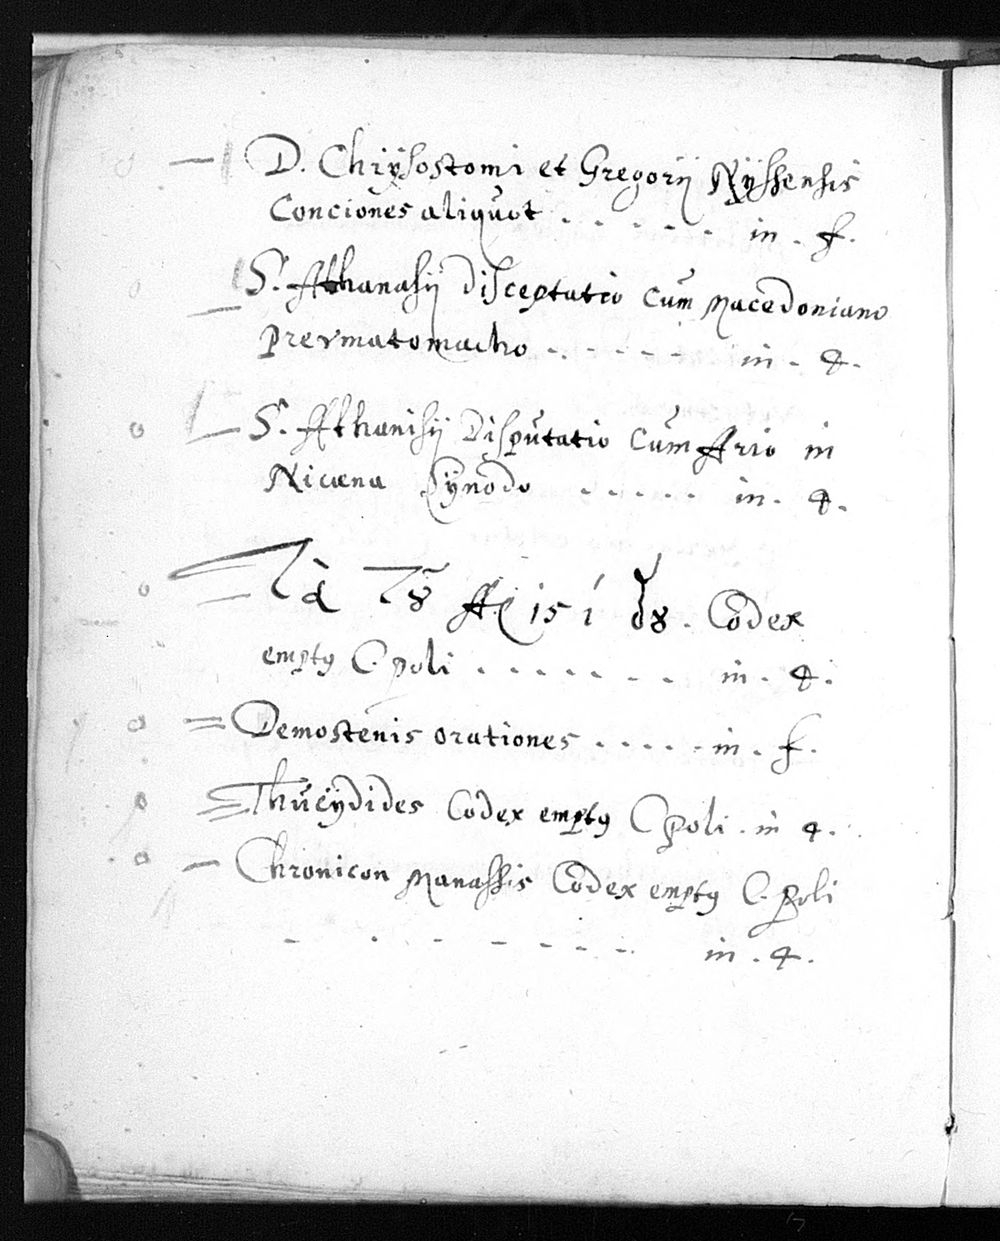 D. Chrÿsostomi et Gregorij Nÿssensis
Conciones aliquot . . . . . . in . f.
S. Athanasij disceptatio cum Macedoniano
Prevmatomacho . . . . . in . 4.
S. Athanisij Disputatio cum Ario in
Nicæna Sÿnodo . . . . . . in . 4.
Τὰ τȣ͂ . Codex
emptꝰ C. poli . . . . . . . in . 4.
Demostenis orationes . . . . . in . f.
Thucÿdides Codex emptꝰ Cpoli . in 4.
Chronicon Manassis Codex emptꝰ C. poli
. . . . . . . in . 4.